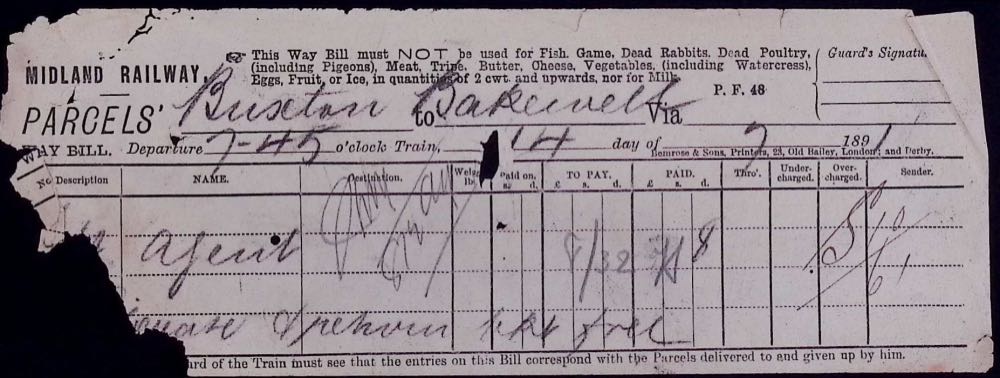 This Way Bill must NOT be used for Fish, Game, Dead Rabbits, Dead Poultry,
(including Pigeons), Meat, Tripe, Butter, Cheese, Vegetables, (including Watercress),
Eggs, Fruit, or Ice, in quantities of 2 cwt. and upwards, nor for Milk.
Guard's Signatu
MIDLAND RAILWAY.
P. F. 48
PARCELS' Buxton to Bakewell Via
WAY BILL. Departure 7-45 o'clock Train, 14 day of 7 1891
Bemrose & Sons, Printers, 23, Old Bailey, London; and Derby.
No Description NAME. Destination. Weight lb. Paid on. s. d. TO PAY. £ s. d. PAID. £ s. d. Thro'. Under-charged. Over-charged. Sender.
Agent 8/32 8 5/10/61
free
ard of the Train must see that the entries on this Bill correspond with the Parcels delivered to and given up by him.